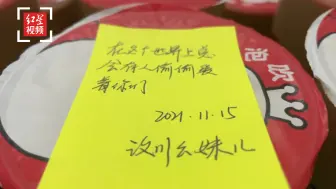 红星
视频
泡吹
在这个世界上总
会有人偷偷爱
着你们
2021.11.15
汶川幺妹儿